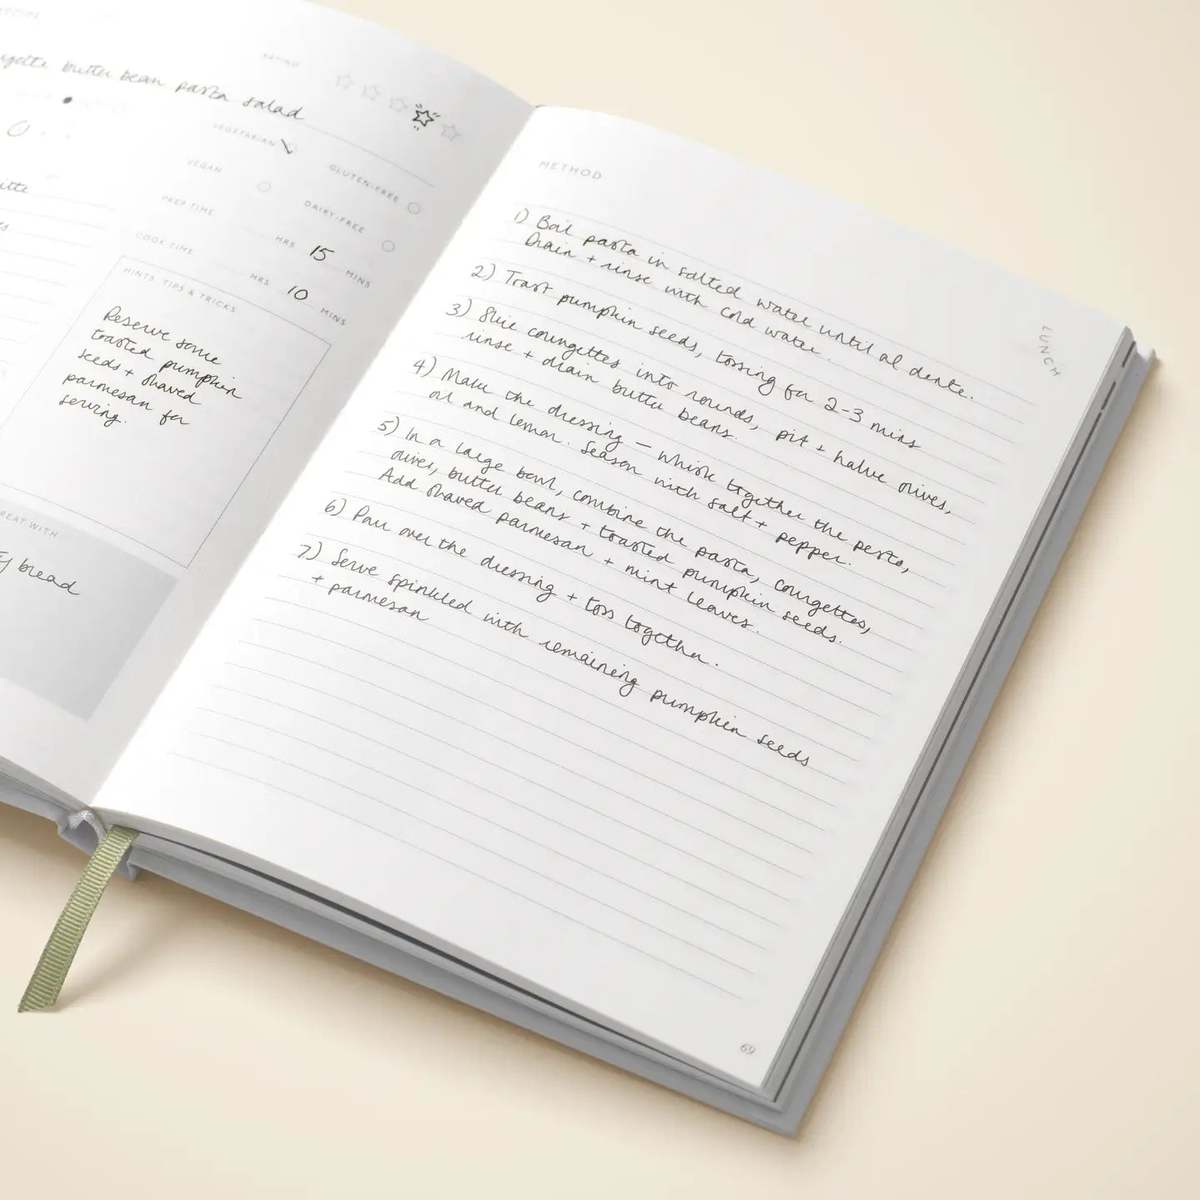 RATING
butter bean pasta salad
VEGETARIAN
GLUTEN-FREE
VEGAN
DAIRY-FREE
PREP TIME
HRS 15 MINS
COOK TIME
HRS 10 MINS
HINTS, TIPS & TRICKS
Reserve some
toasted pumpkin
seeds + shaved
parmesan for
serving.
GREAT WITH
bread
METHOD
1) Boil pasta in salted water until al dente.
Drain + rinse with cold water.
2) Toast pumpkin seeds, tossing for 2-3 mins
3) Slice courgettes into rounds, pit + halve olives,
rinse + drain butter beans.
4) Make the dressing – whisk together the pesto,
oil and lemon. Season with salt + pepper.
5) In a large bowl, combine the pasta, courgettes,
olives, butter beans + toasted pumpkin seeds.
Add shaved parmesan + mint leaves.
6) Pour over the dressing + toss together.
7) Serve spinkled with remaining pumpkin seeds
+ parmesan
LUNCH
69